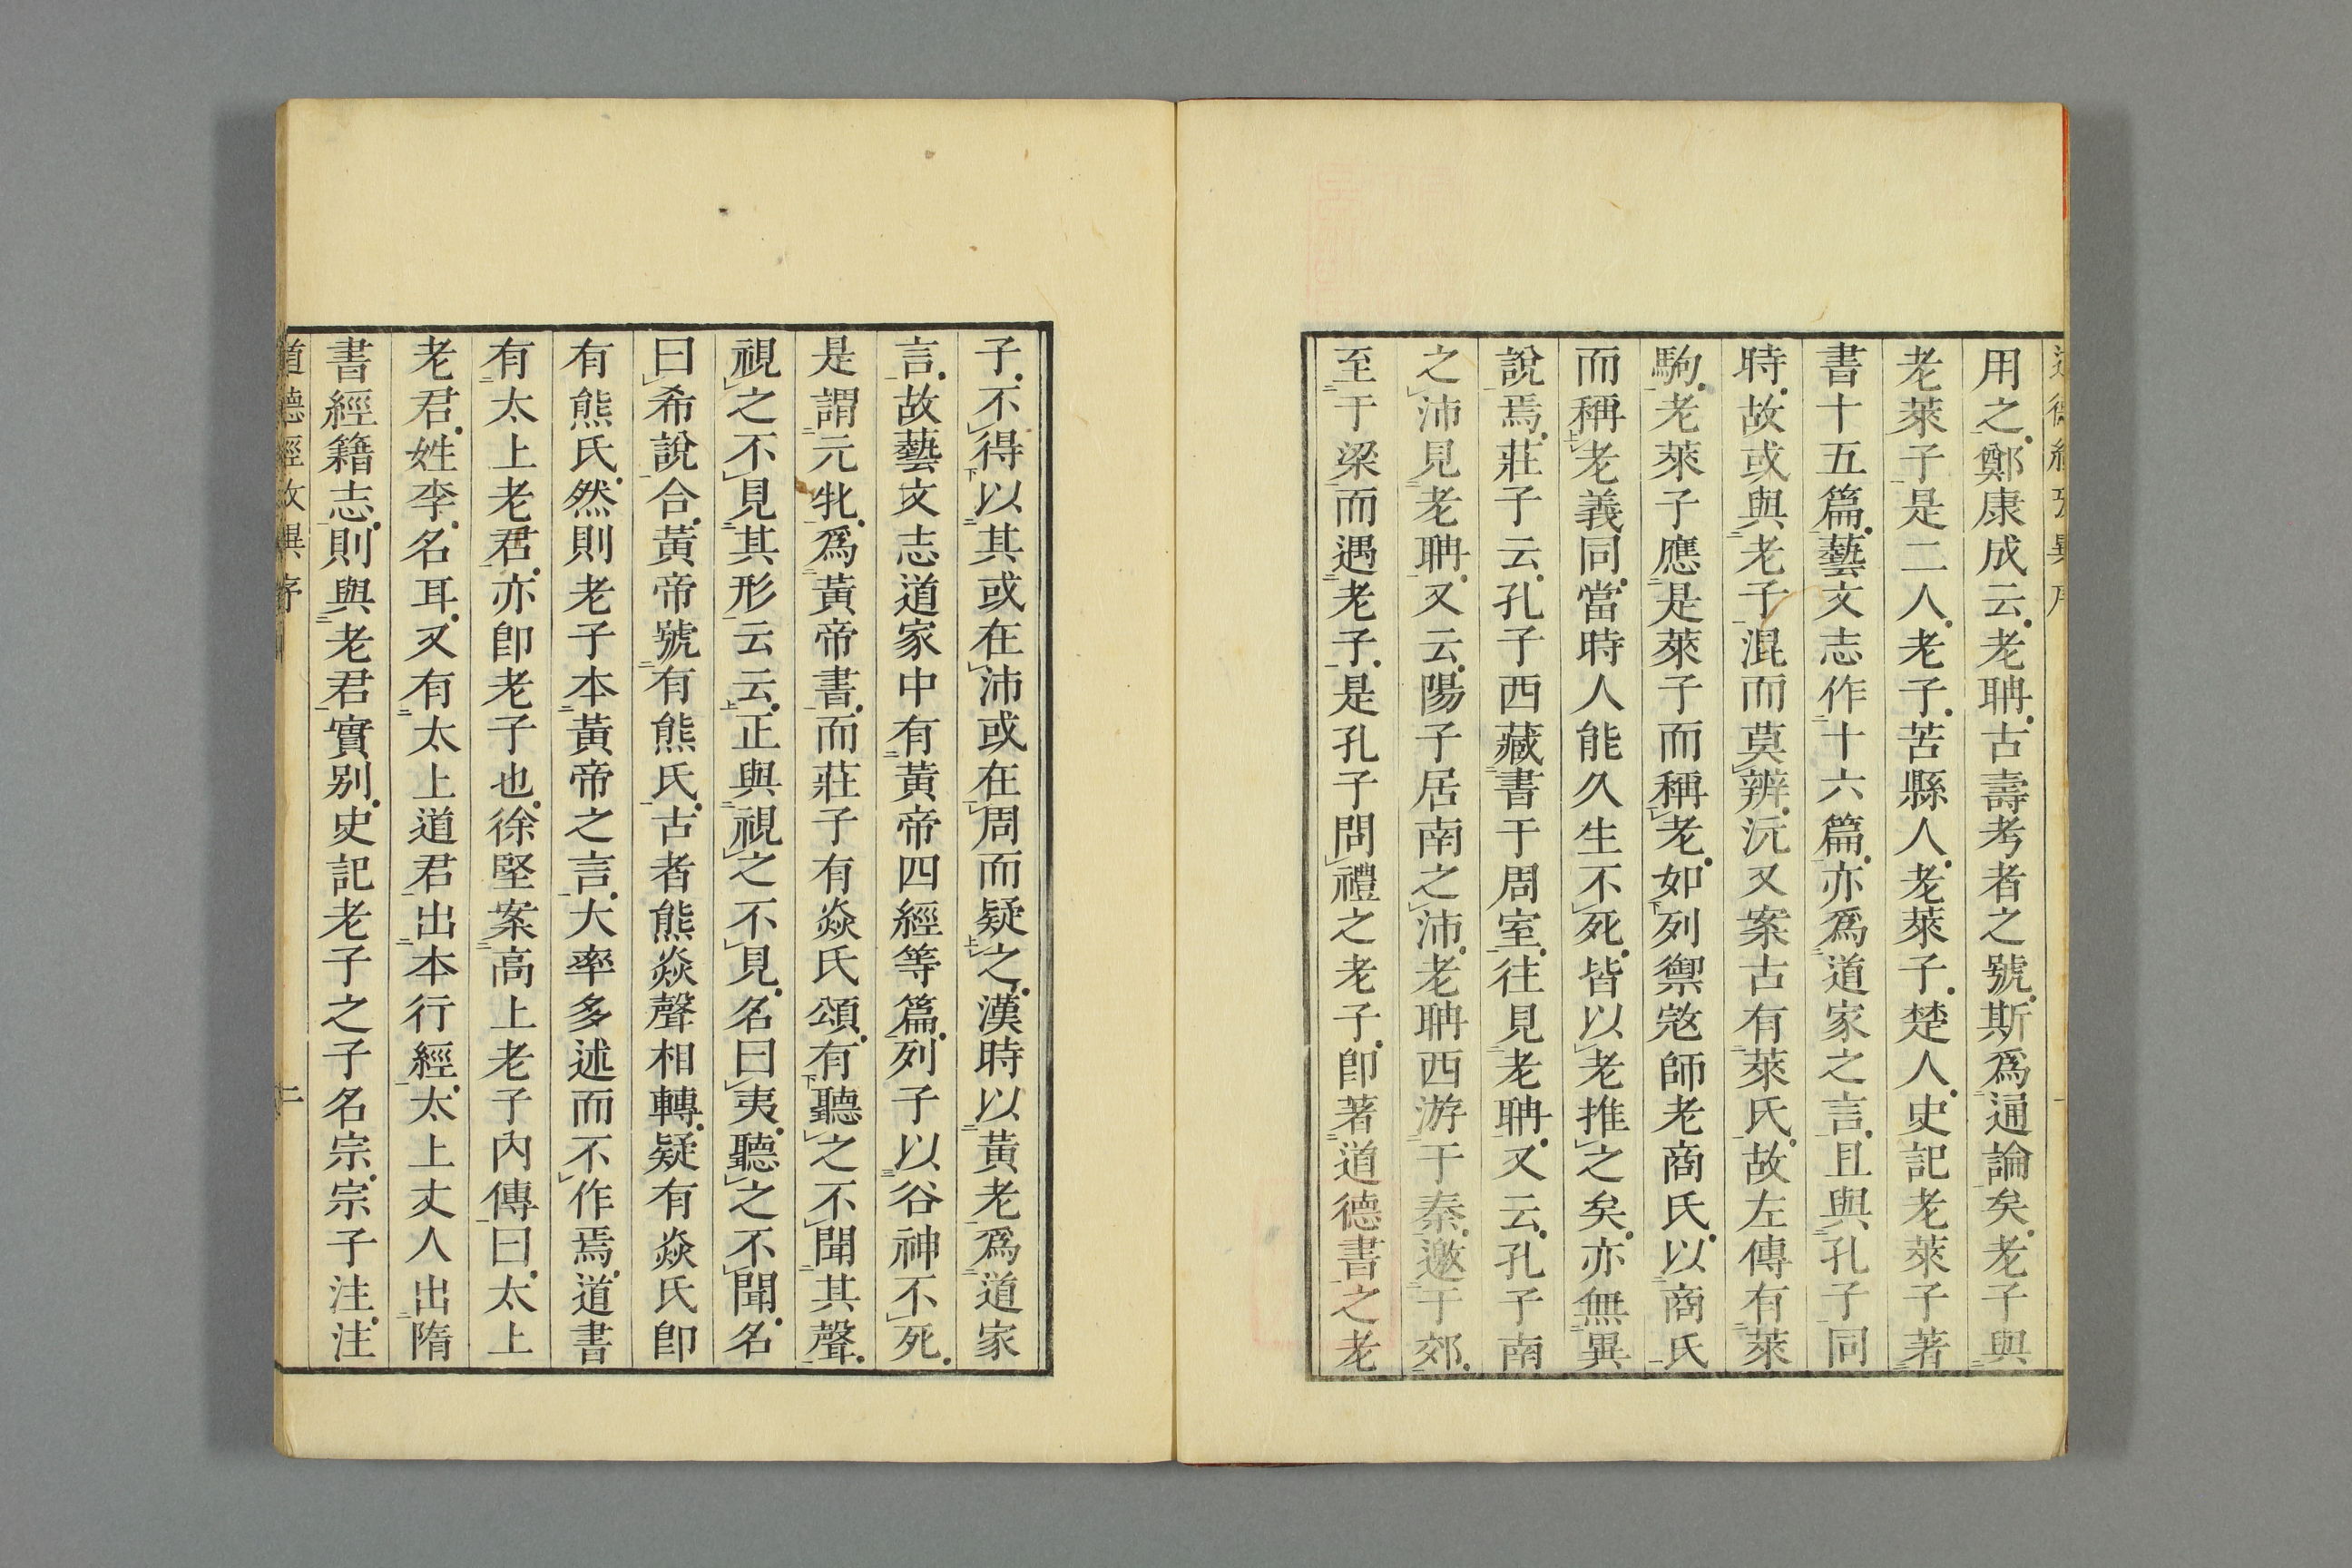 用之鄭康成云老聃古壽考者之號斯爲通論矣老子與
老萊子是二人老子苦縣人老萊子楚人史記老萊子著
書十五篇藝文志作十六篇亦爲道家之言且與孔子同
時故或與老子混而莫辨沅又案古有萊氏故左傳有萊
駒老萊子應是萊子而稱老如列禦寇師老商氏以商氏
而稱老義同當時人能久生不死皆以老推之矣亦無異
說焉莊子云孔子西藏書于周室往見老聃又云孔子南
之沛見老聃又云陽子居南之沛老聃西游于秦邀于郊
至于梁而遇老子是孔子問禮之老子卽著道德書之老
子不得以其或在沛或在周而疑之漢時以黃老爲道家
言故藝文志道家中有黃帝四經等篇列子以谷神不死
是謂元牝爲黃帝書而莊子有焱氏頌有聽之不聞其聲
視之不見其形云云正與視之不見名曰夷聽之不聞名
曰希說合黃帝號有熊氏古者熊焱聲相轉疑有焱氏卽
有熊氏然則老子本黃帝之言大率多述而不作焉道書
有太上老君亦卽老子也徐堅案高上老子內傳曰太上
老君姓李名耳又有太上道君出本行經太上丈人出隋
書經籍志則與老君實別史記老子之子名宗宗子注注
道德經攷異序 二